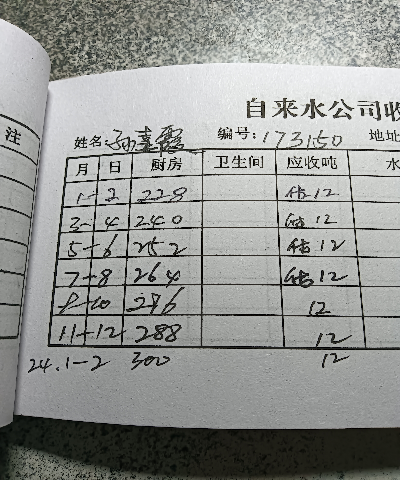 注
自来水公司收
姓名: 孙嘉霞 编号: 173150 地址
月 日 厨房 卫生间 应收吨 水
1-2 228 估12
3-4 240 估12
5-6 252 估12
7-8 264 估12
9-10 276 12
11-12 288 12
24.1-2 300 12